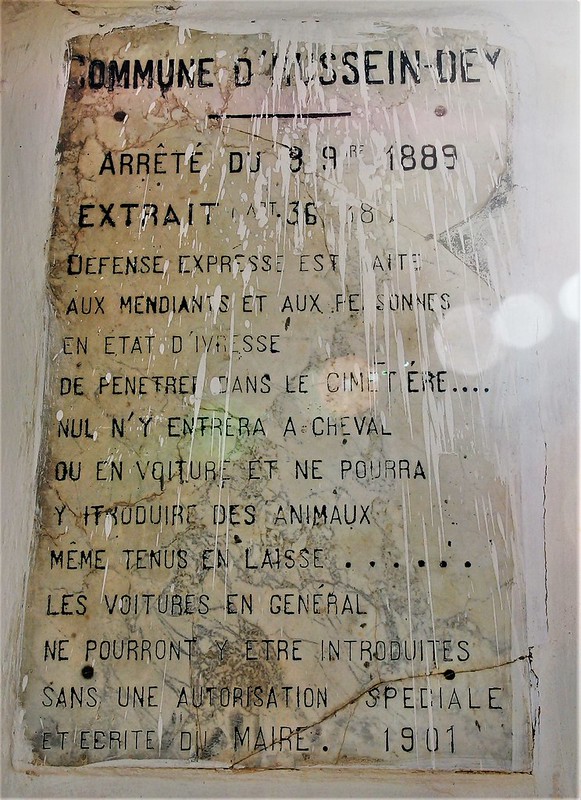 COMMUNE D'HUSSEIN-DEY
ARRÊTÉ DU 8 9RE 1889
EXTRAIT ART. 36
DEFENSE EXPRESSE EST FAITE
AUX MENDIANTS ET AUX PERSONNES
EN ETAT D'IVRESSE
DE PENETRER DANS LE CIMETIÉRE....
NUL N'Y ENTRERA A CHEVAL
OU EN VOITURE ET NE POURRA
Y ITRODUIRE DES ANIMAUX
MÊME TENUS EN LAISSE . . . . . . .
LES VOITURES EN GENÉRAL
NE POURRONT Y ETRE INTRODUITES
SANS UNE AUTORISATION SPECIALE
ET ECRITE DU MAIRE. 1901